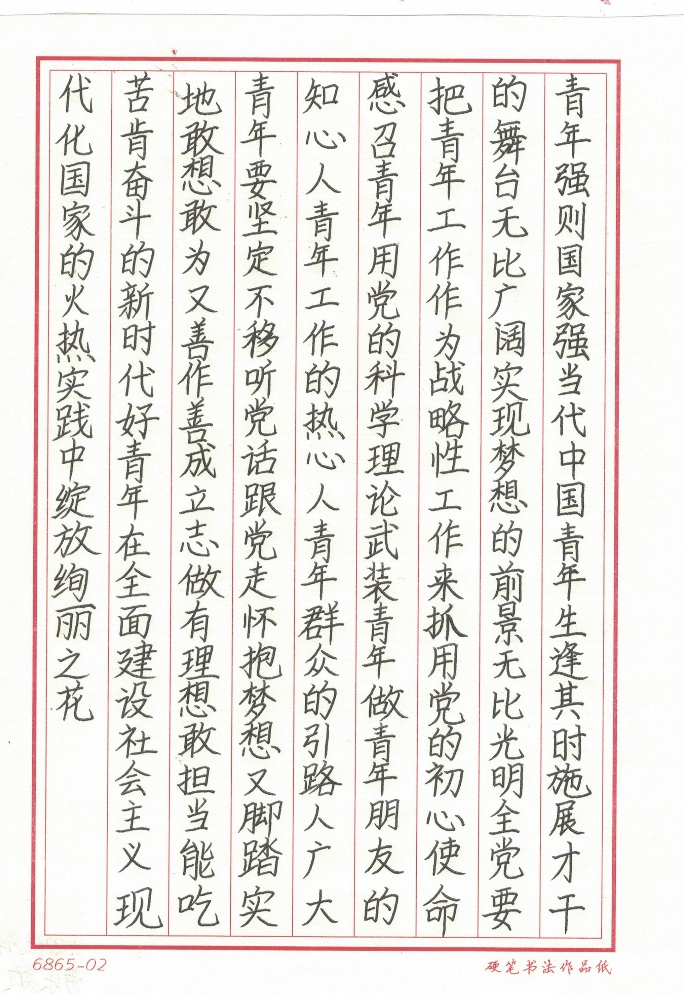 青年强则国家强当代中国青年生逢其时施展才干
的舞台无比广阔实现梦想的前景无比光明全党要
把青年工作作为战略性工作来抓用党的初心使命
感召青年用党的科学理论武装青年做青年朋友的
知心人青年工作的热心人青年群众的引路人广大
青年要坚定不移听党话跟党走怀抱梦想又脚踏实
地敢想敢为又善作善成立志做有理想敢担当能吃
苦肯奋斗的新时代好青年在全面建设社会主义现
代化国家的火热实践中绽放绚丽之花
6865-02
硬笔书法作品纸